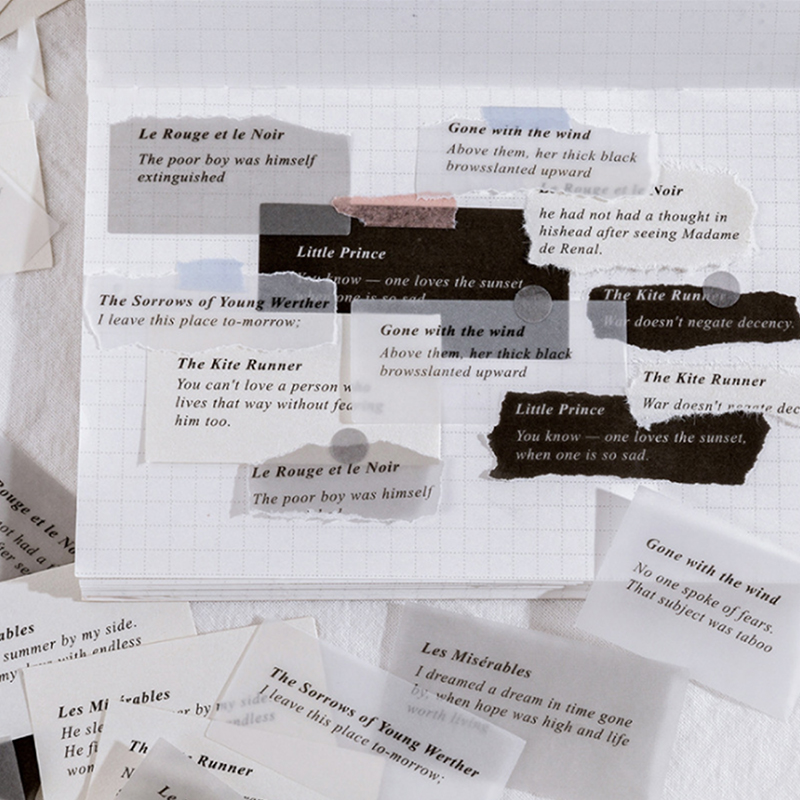 Le Rouge et le Noir
The poor boy was himself
extinguished
Gone with the wind
Above them, her thick black
browsslanted upward
Le Rouge et le Noir
he had not had a thought in
hishead after seeing Madame
de Renal.
Little Prince
You know — one loves the sunset
one is so sad
The Sorrows of Young Werther
I leave this place to-morrow;
The Kite Runner
War doesn't negate decency.
Gone with the wind
Above them, her thick black
browsslanted upward
The Kite Runner
You can't love a person who
lives that way without fearing
him too.
The Kite Runner
War doesn't negate dec
Little Prince
You know — one loves the sunset,
when one is so sad.
Le Rouge et le Noir
The poor boy was himself
Rouge et le No
not had a t
fter se
Gone with the wind
No one spoke of fears.
That subject was taboo
ables
summer by my side.
my with endless
Les Misérables
I dreamed a dream in time gone
by, when hope was high and life
worth living
Les Misérables
He sle er by my side.
He fi endless
won
The Sorrows of Young Werther
I leave this place to-morrow;
Th Runner
N
Le